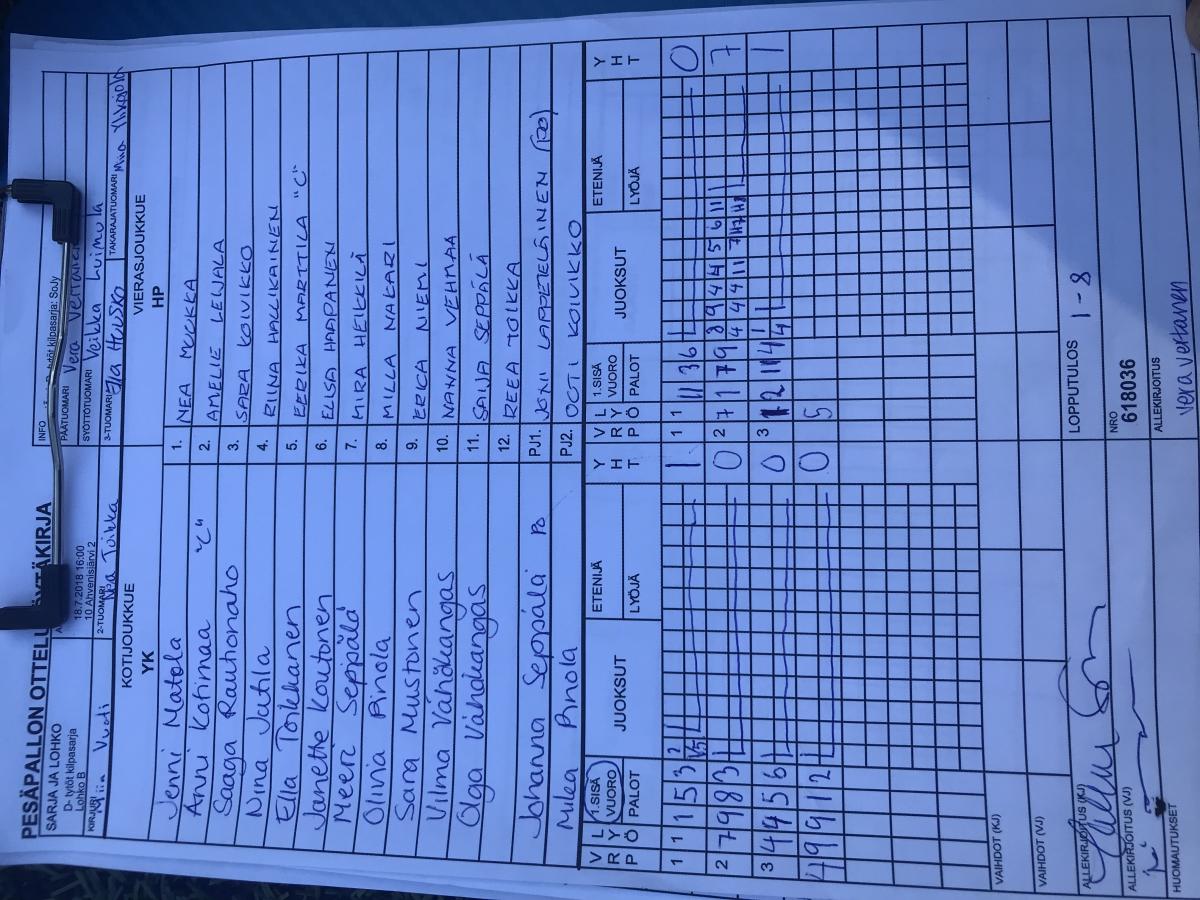 PESÄPALLON OTTELUPÖYTÄKIRJA
SARJA JA LOHKO
D- tytöt kilpasarja
Lohko B
18.7.2018 16:00
10 Ahvenisjärvi 2
INFO
D- tytöt kilpasarja: SoJy
PÄÄTUOMARI Vera Vertanen
SYÖTTÖTUOMARI Veikka Luimula
KIRJURI Vuoti
2-TUOMARI Toikka
3-TUOMARI Ella Housko
TAKARAJATUOMARI Miina Ylikojola
KOTIJOUKKUE
YK
VIERASJOUKKUE
HP
Jenni Matola 1. NEA MUKKA
Anni Kotimaa "C" 2. AMELIE LEIJALA
Saaga Rautionaho 3. SARA KOIVIKKO
Nina Jutila 4. RIINA HALLIKAINEN
Ella Toikkanen 5. EERIKA MARTTILA "C"
Janette Koutonen 6. ELISA HAAPANEN
Meeri Seppälä 7. MIRA HEIKKILÄ
Olivia Pinola 8. MILLA NAKARI
Sara Mustonen 9. ERICA NIEMI
Vilma Vähäkangas 10. NANNA VEHMAA
Olga Vähäkangas 11. SAIJA SEPPÄLÄ
12. REEA TOIKKA
Johanna Seppälä PO PJ1. JONI LAPPETELÄINEN (PO)
Milea Pinola PJ2. OUTI KOIVIKKO
V R P L Y Ö 1.SISÄ VUORO PALOT JUOKSUT ETENIJÄ LYÖJÄ Y H T V R P L Y Ö 1.SISÄ VUORO PALOT JUOKSUT ETENIJÄ LYÖJÄ Y H T
1 1 1 5 3 1 1 1 11 3 6 0
2 7 9 8 3 0 2 7 1 7 9 8 9 4 4 5 6 11 7
3 4 4 5 6 0 3 12 11 4 1
4 9 9 1 2 0 5
VAIHDOT (KJ)
VAIHDOT (VJ)
ALLEKIRJOITUS (KJ)
LOPPUTULOS 1 - 8
ALLEKIRJOITUS (VJ)
NRO
618036
HUOMAUTUKSET
ALLEKIRJOITUS
Vera Vertanen